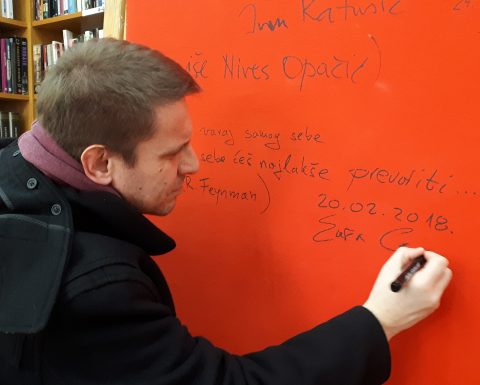 Ivan Katušić
iše Nives Opačić)
varaj samog sebe
sebe ćeš najlakše prevariti...
R. Feynman)
20.02.2018.
Saša C